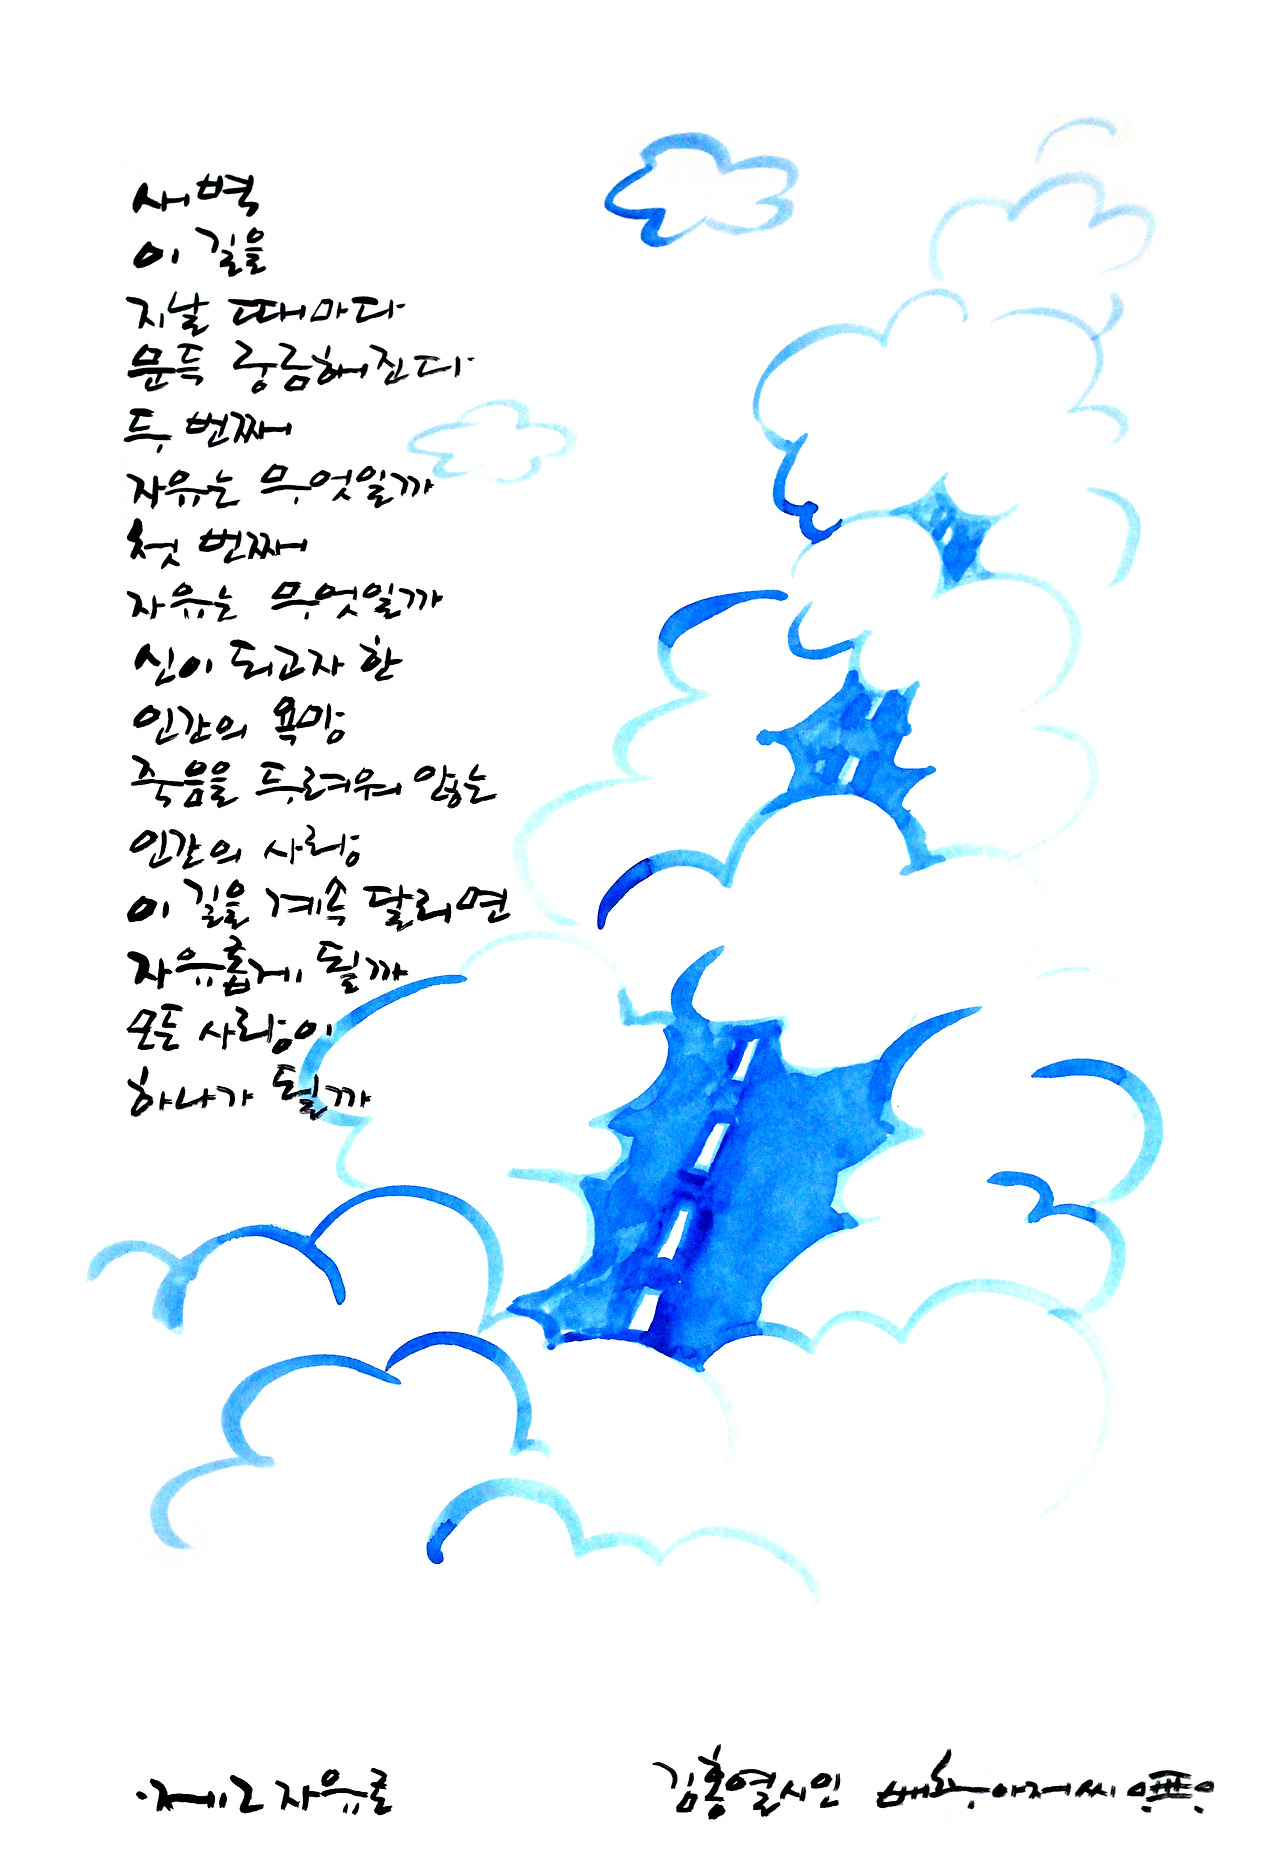 새벽
이 길을
지날 때마다
문득 궁금해진다
두 번째
자유는 무엇일까
첫 번째
자유는 무엇일까
신이 되고자 한
인간의 욕망
죽음을 두려워 않는
인간의 사랑
이 길을 계속 달리면
자유롭게 될까
모든 사랑이
하나가 될까
·제2자유로
김홍열시인